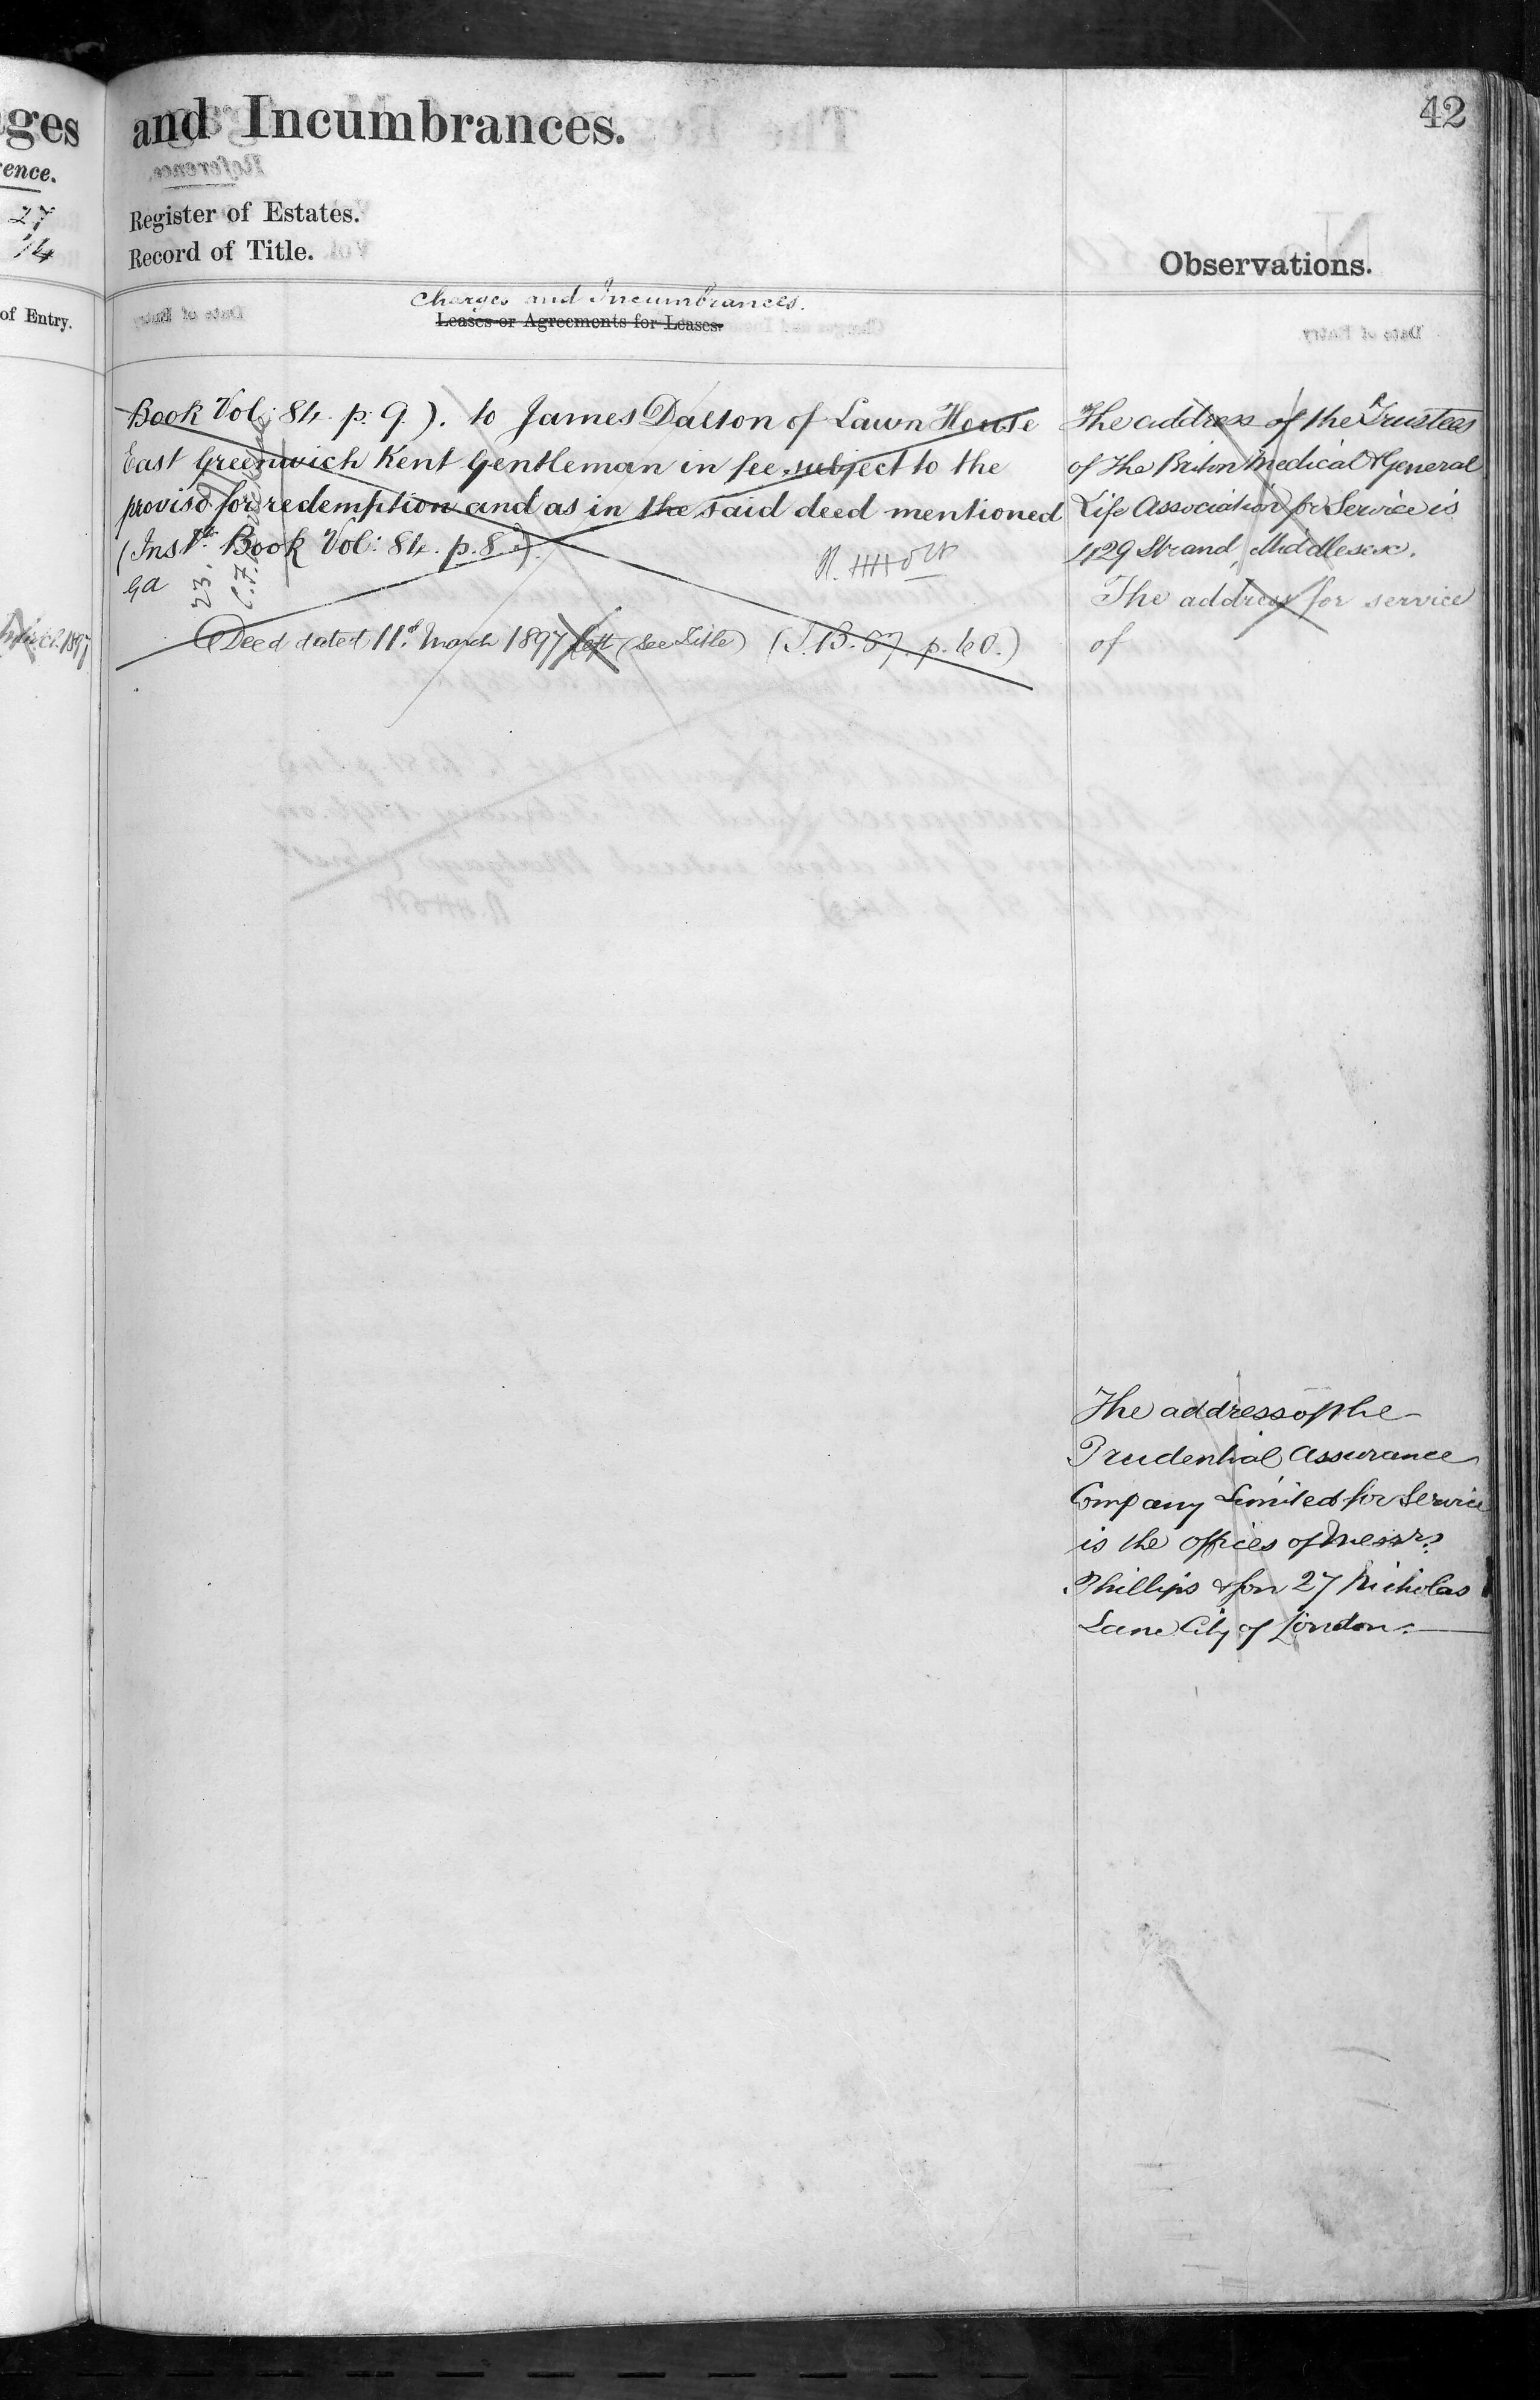 ges
ence.
27
14
of Entry.
March 1897
and Incumbrances.
42
Register of Estates.
Record of Title.
Observations.
Charges and Incumbrances.
Leases or Agreements for Leases.
Book Vol: 84. p. 9.). to James Dalton of Lawn House
East Greenwich Kent Gentleman in fee subject to the
proviso for redemption and as in the said deed mentioned
(Inst. Book Vol: 84. p. 8.).
Ga
Deed dated 11th March 1897 left (see Title) (I.B. 87. p. 60.)
The address of the Trustees
of The Briton Medical & General
Life Association for Service is
429 Strand, Middlesex.
The address for service
of
The address of the
Prudential Assurance
Company Limited for Service
is the offices of Messrs.
Phillips & Son 27 Nicholas
Lane City of London.